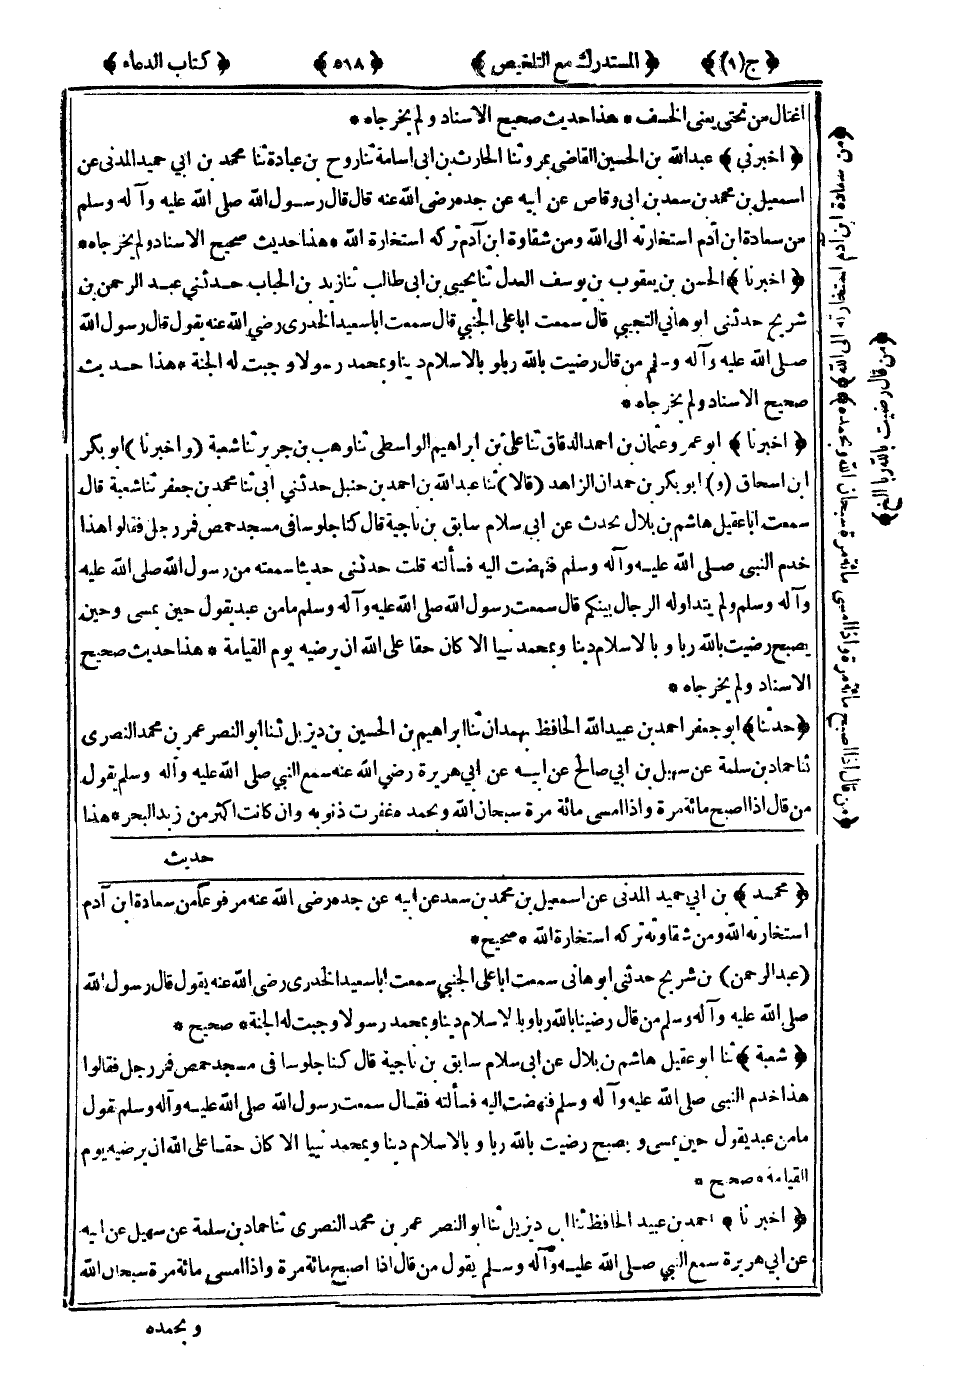 ﴿ ج (١) ﴾ ﴿ المستدرك مع التلخيص ﴾ ﴿ ٥١٨ ﴾ ﴿ كتاب الدعاء ﴾
اغتال من تحتى يعنى الخسف * هذا حديث صحيح الاسناد ولم يخرجاه *
﴿ اخبرني ﴾ عبدالله بن الحسين القاضى بمرو ثنا الحارث بن ابى اسامة ثنا روح بن عبادة ثنا محمد بن ابي حميد المدنى عن
اسمعيل بن محمد بن سعد بن ابى وقاص عن ابيه عن جده رضى الله عنه قال قال رسول الله صلى الله عليه وآله وسلم
من سعادة ابن آدم استخارته الى الله ومن شقاوة ابن آدم تركه استخارة الله * هذا حديث صحيح الاسناد ولم يخرجاه *
﴿ اخبرنا ﴾ الحسن بن يعقوب بن يوسف العدل ثنا يحيى بن ابى طالب ثنا زيد بن الحباب حدثني عبد الرحمن بن
شريح حدثنى ابو هاني التجيبي قال سمعت ابا على الجنبي قال سمعت ابا سعيد الخدرى رضي الله عنه يقول قال رسول الله
صلى الله عليه وآله وسلم من قال رضيت بالله ربا و بالاسلام دينا و بمحمد رسولا وجبت له الجنة * هذا حديث
صحيح الاسناد ولم يخرجاه *
﴿ اخبرنا ﴾ ابو عمرو عثمان بن احمد الدقاق ثنا على بن ابراهيم الواسطى ثنا وهب بن جرير ثنا شعبة (واخبرنا) ابو بكر
ابن اسحاق (و) ابو بكر بن حمدان الزاهد (قالا) ثنا عبدالله بن احمد بن حنبل حدثني ابى ثنا محمد بن جعفر ثنا شعبة قال
سمعت ابا عقيل هاشم بن بلال يحدث عن ابي سلام سابق بن ناجية قال كنا جلوسا فى مسجد حمص فمر رجل فقالوا هذا
خدم النبى صلى الله عليه وآله وسلم فنهضت اليه فسألته قلت حدثنى حديثا سمعته من رسول الله صلى الله عليه
وآله وسلم ولم يتداوله الرجال بينكم قال سمعت رسول الله صلى الله عليه وآله وسلم ما من عبد يقول حين يمسى وحين
يصبح رضيت بالله ربا و بالاسلام دينا و بمحمد نبيا الا كان حقا على الله ان يرضيه يوم القيامة * هذا حديث صحيح
الاسناد ولم يخرجاه *
﴿ حدثنا ﴾ ابو جعفر احمد بن عبيد الله الحافظ بهمدان ثنا ابراهيم بن الحسين بن ديزيل ثنا ابو النصر عمر بن محمد النصرى
ثنا حماد بن سلمة عن سهيل بن ابي صالح عن ابيه عن ابي هريرة رضي الله عنه سمع النبي صلى الله عليه وآله وسلم يقول
من قال اذا اصبح مائة مرة واذا امسى مائة مرة سبحان الله وبحمده غفرت ذنوبه وان كانت اكثر من زبد البحر * هذا
حديث
﴿ محمد ﴾ بن ابي حميد المدنى عن اسمعيل بن محمد بن سعد عن ابيه عن جده رضى الله عنه مرفوعا من سعادة ابن آدم
استخارته الله ومن شقاوته تركه استخارة الله * صحيح *
(عبدالرحمن) بن شريح حدثنى ابو هانى سمعت ابا على الجنبي سمعت ابا سعيد الخدرى رضى الله عنه يقول قال رسول الله
صلى الله عليه وآله وسلم من قال رضينا بالله ربا وبالاسلام دينا وبمحمد رسولا وجبت له الجنة * صحيح *
﴿ شعبة ﴾ ثنا ابو عقيل هاشم بن بلال عن ابى سلام سابق بن ناجية قال كنا جلوسا فى مسجد حمص فمر رجل فقالوا
هذا خدم النبى صلى الله عليه وآله وسلم فنهضت اليه فسألته فقال سمعت رسول الله صلى الله عليه وآله وسلم يقول
ما من عبد يقول حين يمسى و يصبح رضيت بالله ربا و بالاسلام دينا و بمحمد نبيا الا كان حقا على الله ان يرضيه يوم
القيامة * صحيح *
﴿ اخبرنا ﴾ احمد بن عبيد الحافظ ثنا ابن ديزيل ثنا ابو النصر عمر بن محمد النصرى ثنا حماد بن سلمة عن سهيل عن ابيه
عن ابي هريرة سمع النبي صلى الله عليه وآله وسلم يقول من قال اذا اصبح مائة مرة واذا امسى مائة مرة سبحان الله
و بحمده
﴿ من سعادة ابن آدم استخارته الى الله ﴾
﴿ من قال رضيت بالله ربا الخ ﴾
﴿ من قال اذا اصبح مائة مرة واذا امسى مائة مرة سبحان الله وبحمده ﴾